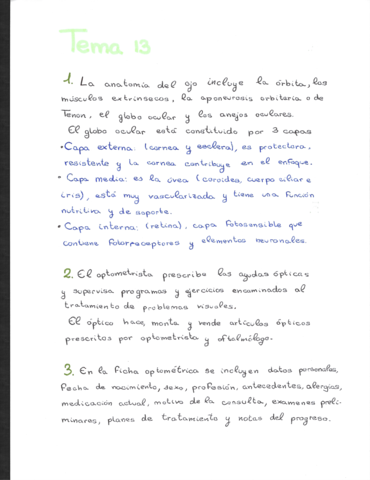 Tema 13
1. La anatomía del ojo incluye la órbita, los
músculos extrínsecos, la aponeurosis orbitaria o de
Tenon, el globo ocular y los anejos oculares.
El globo ocular está constituido por 3 capas
• Capa externa: (cornea y esclera), es protectora,
resistente y la cornea contribuye en el enfoque.
• Capa media: es la úvea (coroides, cuerpo ciliar e
iris), está muy vascularizada y tiene una función
nutritiva y de soporte.
• Capa interna: (retina), capa fotosensible que
contiene fotorreceptores y elementos neuronales.
2. El optometrista prescribe las ayudas ópticas
y supervisa programas y ejercicios encaminados al
tratamiento de problemas visuales.
El óptico hace, monta y vende artículos ópticos
prescritos por optometrista y oftalmólogo.
3. En la ficha optométrica se incluyen datos personales,
fecha de nacimiento, sexo, profesión, antecedentes, alergias,
medicación actual, motivo de la consulta, exámenes preli-
minares, planes de tratamiento y notas del progreso.